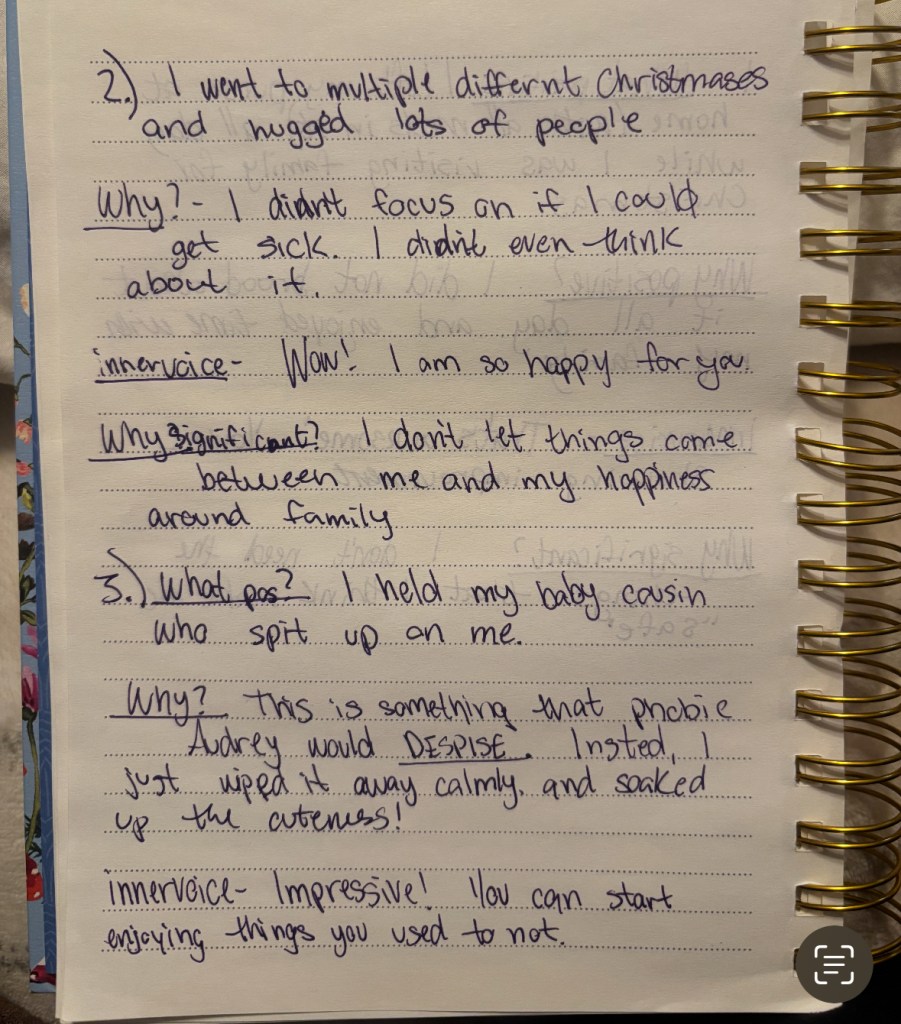 2.) I went to multiple differnt Christmases
and hugged lots of people
Why? - I didn't focus on if I could
get sick. I didn't even think
about it.
innervoice - Wow! I am so happy for you.
Why significant? I don't let things come
between me and my happiness
around family
3.) What pos? I held my baby cousin
who spit up on me.
Why? This is something that phobie
Audrey would DESPISE. Insted, I
just wiped it away calmly. and soaked
up the cuteness!
innervoice - Impressive! You can start
enjoying things you used to not.